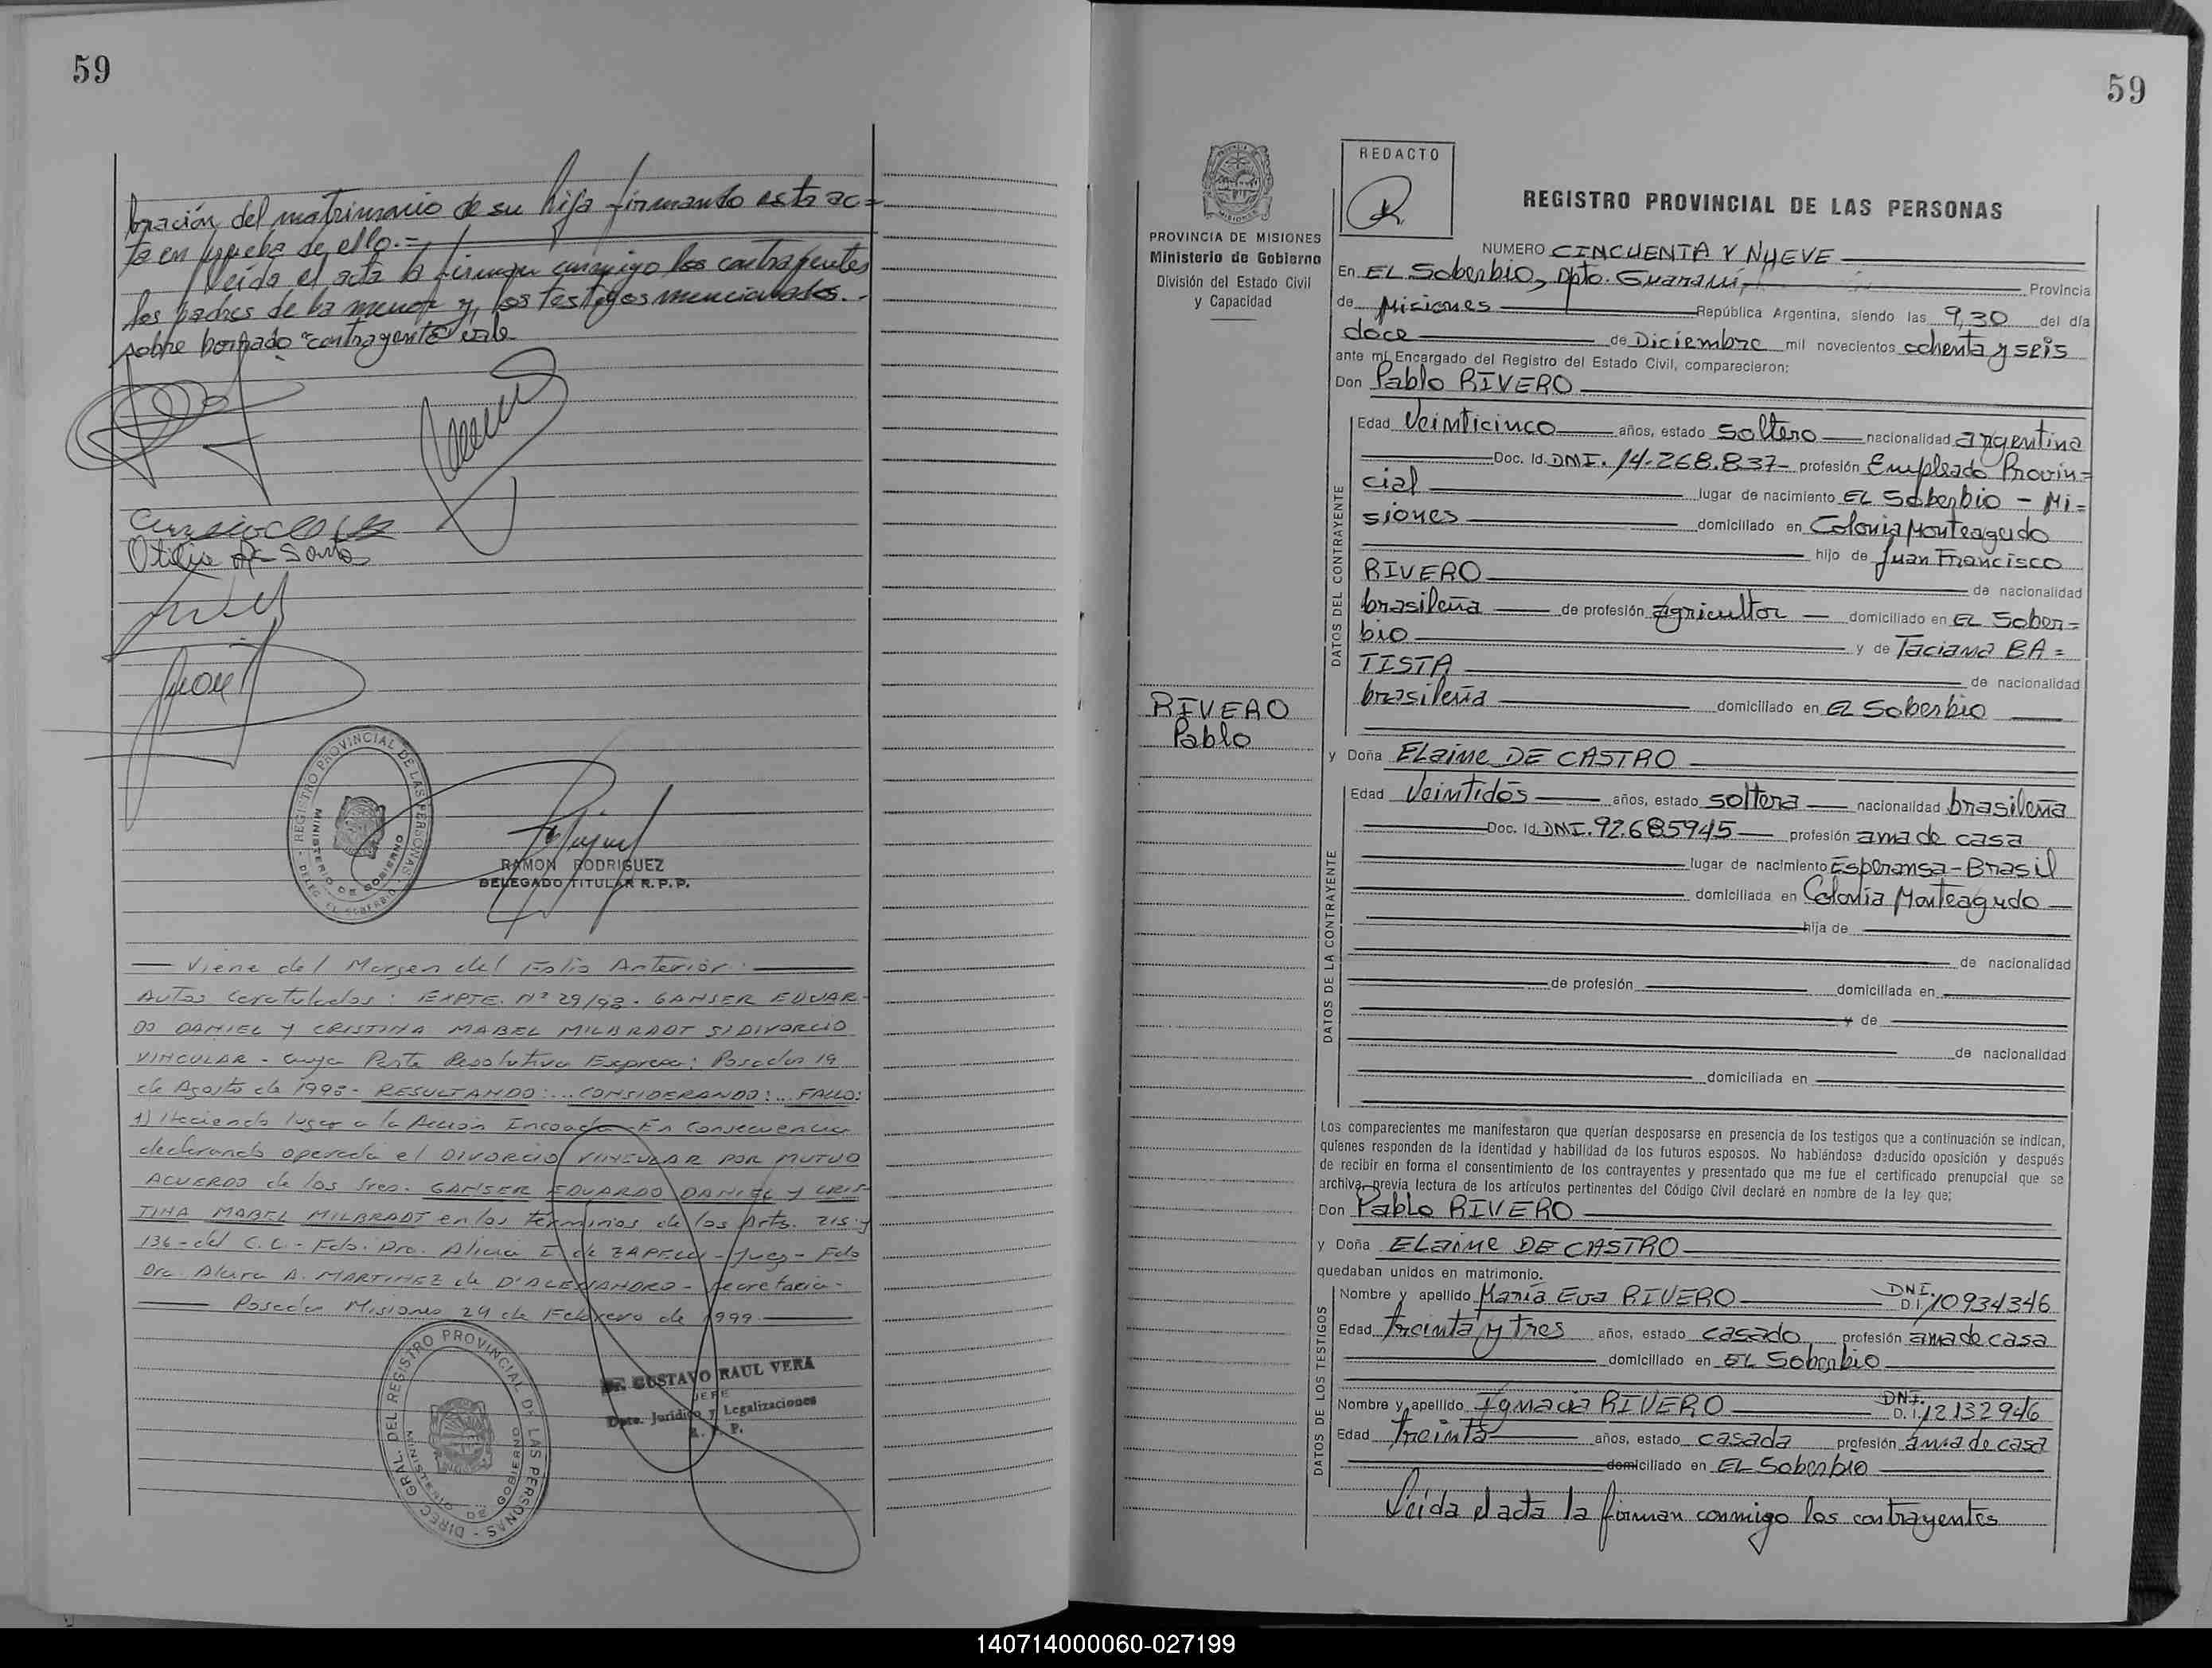 59
bración del matrimonio de su hija firmando esta ac=
ta en prueba de ello.=
Leída el acta la firman conmigo los contrayentes
los padres de la menor y los testigos mencionados.-
sobre borrado "contrayente" vale
Otilia Da Santo
REGISTRO PROVINCIAL DE LAS PERSONAS
MINISTERIO DE GOBIERNO
DELEG. EL SOBERBIO
RAMON RODRIGUEZ
DELEGADO TITULAR R.P.P.
Viene del Margen del Folio Anterior:
Autos Caratulados: EXPTE. Nº 29/98. GANSER EDUAR-
DO DANIEL Y CRISTINA MABEL MILBRADT S/DIVORCIO
VINCULAR - cuya Parte Resolutiva Expresa: Posadas 19
de Agosto de 1998- RESULTANDO:... CONSIDERANDO:... FALLO:
1) Haciendo lugar a la Acción Incoada En Consecuencia
declarando operada el DIVORCIO VINCULAR POR MUTUO
ACUERDO de los Sres. GANSER EDUARDO DANIEL y CRIS-
TINA MABEL MILBRADT en los términos de los Arts. 215 y
136 - del C.C. - Fdo. Dra. Alicia I. de - Juez - Fdo
Dra. A. MARTINEZ de D'ALESSANDRO - Secretaria-
Posadas Misiones 24 de Febrero de 1999
DIREC. GRAL. DEL REGISTRO PROVINCIAL DE LAS PERSONAS
MINISTERIO DE GOBIERNO
GUSTAVO RAUL VERA
JEFE
Dpto. Jurídico y Legalizaciones
R. P. P.
59
PROVINCIA DE MISIONES
Ministerio de Gobierno
División del Estado Civil
y Capacidad
REDACTO
REGISTRO PROVINCIAL DE LAS PERSONAS
NUMERO CINCUENTA Y NUEVE
En EL Soberbio, Dpto. Guaraní, Provincia
de Misiones República Argentina, siendo las 9,30 del día
doce de Diciembre mil novecientos ochenta y seis
ante mí, Encargado del Registro del Estado Civil, comparecieron:
Don Pablo RIVERO
DATOS DEL CONTRAYENTE
Edad Veinticinco años, estado soltero nacionalidad argentina
Doc. Id. DNI. 14.268.837- profesión Empleado Provin=
cial lugar de nacimiento EL Soberbio - Mi=
siones domiciliado en Colonia Monteagudo
hijo de Juan Francisco
RIVERO de nacionalidad
brasileña de profesión agricultor domiciliado en EL Sober=
bio y de Taciana BA=
TISTA de nacionalidad
brasileña domiciliado en EL Soberbio
RIVERO
Pablo
y Doña ELaine DE CASTRO
DATOS DE LA CONTRAYENTE
Edad Veintidós años, estado soltera nacionalidad brasileña
Doc. Id. DNI. 92.685945 profesión ama de casa
lugar de nacimiento Esperansa - Brasil
domiciliada en Colonia Monteagudo
hija de
de nacionalidad
de profesión domiciliada en
y de
de nacionalidad
domiciliada en
Los comparecientes me manifestaron que querían desposarse en presencia de los testigos que a continuación se indican,
quienes responden de la identidad y habilidad de los futuros esposos. No habiéndose deducido oposición y después
de recibir en forma el consentimiento de los contrayentes y presentado que me fue el certificado prenupcial que se
archiva, previa lectura de los artículos pertinentes del Código Civil declaré en nombre de la ley que;
Don Pablo RIVERO
y Doña ELaine DE CASTRO
quedaban unidos en matrimonio.
DATOS DE LOS TESTIGOS
Nombre y apellido María Eva RIVERO DNI. D.I. 10934346
Edad treinta y tres años, estado casado profesión ama de casa
domiciliado en EL Soberbio
Nombre y apellido Ignacia RIVERO DNI. D.I. 12132946
Edad Treinta años, estado casada profesión ama de casa
domiciliado en EL Soberbio
Leída el acta la firman conmigo los contrayentes
140714000060-027199